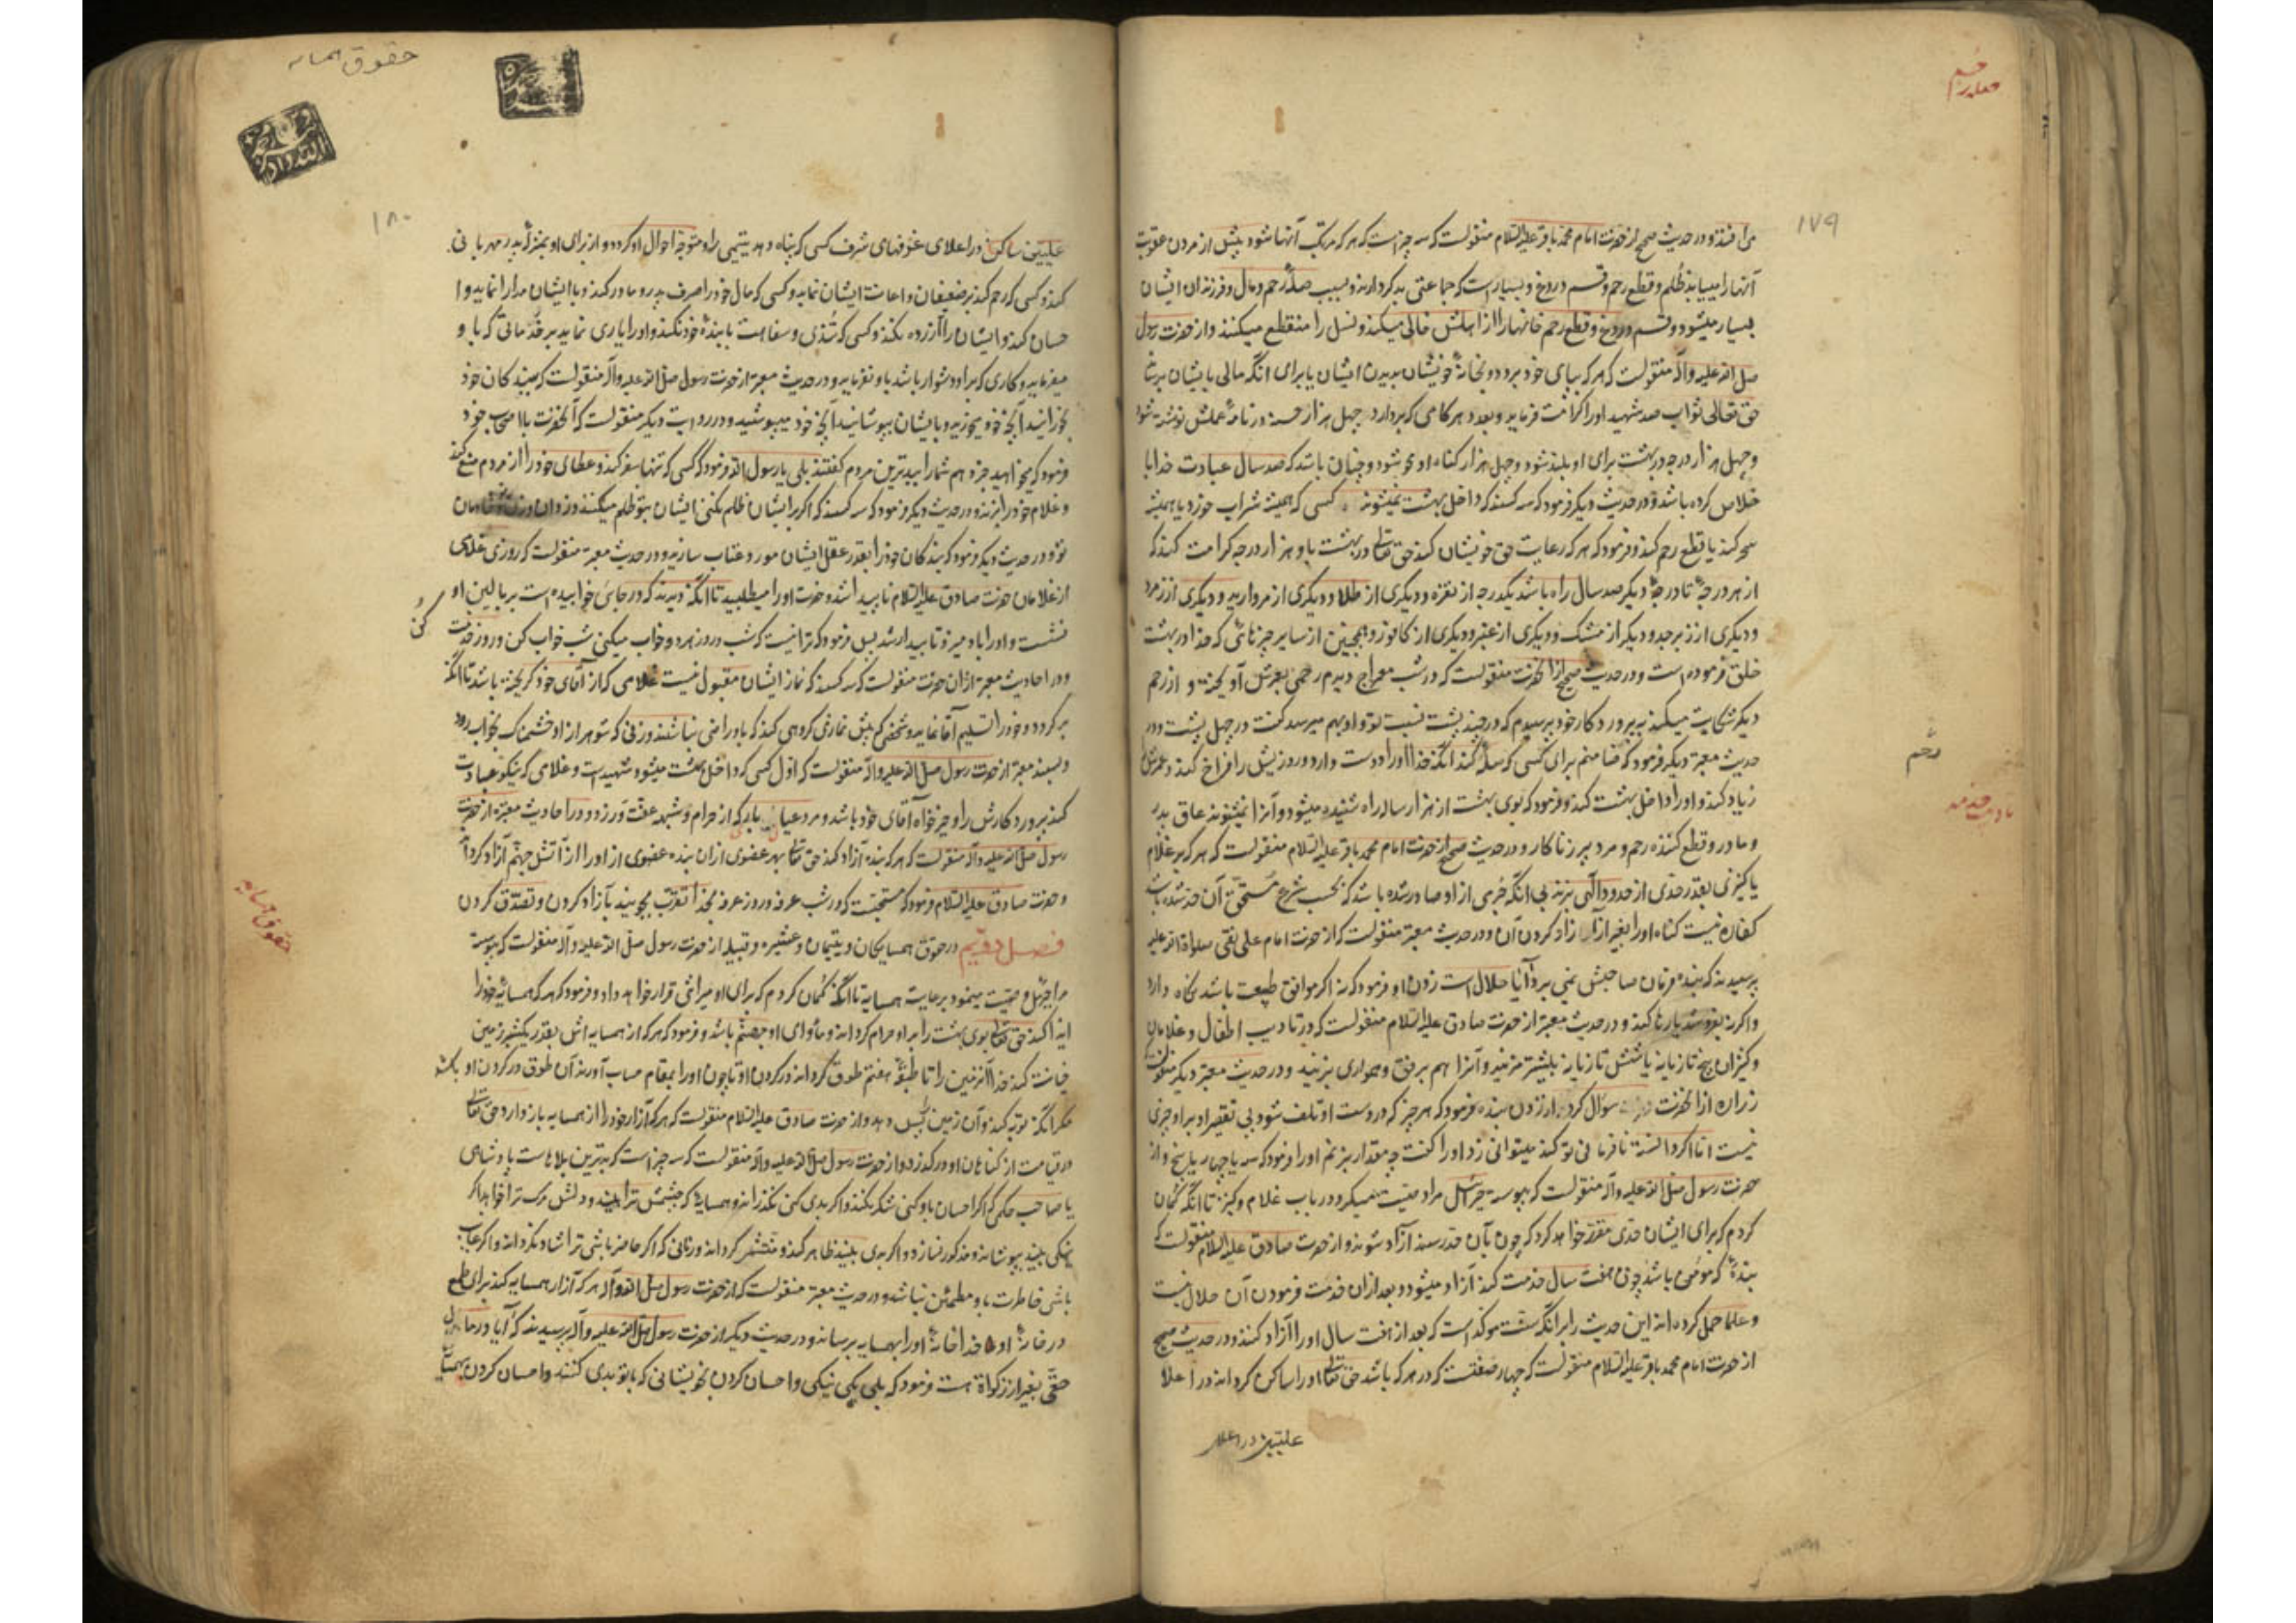 ۱۷۹
می‌افتند و در حدیث صحیح از حضرت امام محمد باقر علیه السلام منقولست که سه چیز است که هر که مرتکب آنها شود پیش از مردن عقوبت
آنها را میبیابد ظلم و قطع رحم و قسم دروغ و بسیار است که جماعتی بدکردارند و بسبب صلهٔ رحم و مال و فرزندان ایشان
بسیار میشود و قسم دروغ و قطع رحم خانها را از اهلش خالی میکند و نسل را منقطع میکنند و از حضرت رسول
صلی الله علیه وآله منقولست که هر که بپای خود برود و بخانهٔ خویشان بدیدن ایشان یا برای آنکه مالی بایشان برساند
حق تعالی ثواب صد شهید او را کرامت فرماید و بعدد هر کامی که بردارد چهل هزار حسنه در نامهٔ عملش نوشته شود
و چهل هزار درجه در بهشت برای او بلند شود و چهل هزار کناه او محو شود و چنان باشد که صد سال عبادت خدا با
خلاص کرده باشد و در حدیث دیگر فرمود که سه کسند که داخل بهشت نمیشوند کسی که همیشه شراب خورد یا همیشه
سحر کند یا قطع رحم کند و فرمود که هر که رعایت حق خویشان کند حق تعالی در بهشت باو هزار درجه کرامت کند که
از هر درجهٔ تا درجهٔ دیگر صد سال راه باشد یکدرجه از نقره و دیگری از طلا و دیگری از مروارید و دیگری از زمرد
و دیگری از زبرجد و دیگر از مشک و دیگری از عنبر و دیگری از کافور و همچنین از سایر چیزهائی که خدا در بهشت
خلق فرموده است و در حدیث صحیح از آنحضرت منقولست که در شب معراج دیدم رحمی بعرش آویخته و از رحم
دیگر شکایت میکند به پروردکار خود پرسیدم که در چند پشت نسبت تو و او بهم میرسد گفت در چهل پشت و در
حدیث معتبر دیگر فرمود که ضامنم برای کسی که صلهٔ کند آنکه خدا او را دوست دارد و روزیش را فراخ کند و عمرش
زیاد کند و او را داخل بهشت کند و فرمود که بوی بهشت از هزار ساله راه شنیده میشود و آنرا نمیشنوند عاق پدر
و مادر و قطع کننده رحم و مرد پیر زناکار و در حدیث صحیح از حضرت امام محمد باقر علیه السلام منقولست که هر که بر غلام
یا کنیزی بقدر حدی از حدود الهی بزند بی آنکه جرمی از او صادر شده باشد که بحسب شرع مستحق آن حد شده باشد
کفاره نیست کناه او را بغیر از آزاد کردن آن و در حدیث معتبر منقولست که از حضرت امام علی نقی صلواة الله علیه
پرسیدند که بنده فرمان صاحبش نمی برد آیا حلال است زدن او فرمود که نه اکر موافق طبیعت باشد نکاه دارد
واکر نه بفروشد یا رها کند و در حدیث معتبر از حضرت صادق علیه السلام منقولست که در تادیب اطفال و غلامان
و کنیزان پنج تازیانه یا شش تازیانه بیشتر مزنید و آنرا هم برفق و همواری بزنید و در حدیث معتبر دیگر منقولست
زراره از آنحضرت سوال کرد از زدن بنده فرمود که هر چیز که در دست او تلف شود بی تقصیر او بر او چیزی
نیست اما اکر دانسته نافرمانی تو کند میتوانی زد او را کفت چه مقدار بزنم او را فرمود که سه یا چهار یا پنج و از
حضرت رسول صلی الله علیه وآله منقولست که پیوسته جبرائیل مرا وصیت میکرد در باب غلام و کنیز تا آنکه گمان
کردم که برای ایشان حدی مقرر خواهد کرد که چون بآن حد رسند آزاد شوند و از حضرت صادق علیه السلام منقولست که
بندهٔ که مومن باشد چون هفت سال خدمت کند آزاد میشود و بعد از آن خدمت فرمودن آن حلال نیست
و علما حمل کرده اند این حدیث را بر آنکه سنت موکد است که بعد از هفت سال او را آزاد کنند و در حدیث صحیح
از حضرت امام محمد باقر علیه السلام منقولست که چهار صفتست که در هر که باشد حق تعالی او را ساکن کرداند در اعلا
علیین در اعلا
رحم
حقوق همسایه
۱۸۰
علیین ساکن در اعلای غرفهای شرف کسی که پناه دهد یتیمی را و متوجه احوال او کردد و از برای او بمنزلهٔ پدر مهربانی
کند و کسی که رحم کند بر ضعیفان و اعانت ایشان نماید و کسی که مال خود را صرف پدر و مادر کند و با ایشان مدارا نماید و ا
حسان کند و ایشان را آزرده نکند و کسی که تندی و سفاهت با بندهٔ خود نکند و او را یاری نماید بر خدماتی که باو
میفرماید و کاری که بر او دشوار باشد باو نفرماید و در حدیث معتبر از حضرت رسول صلی الله علیه وآله منقولست که ببندکان خود
بخورانید آنچه خود میخورید و بایشان بپوشانید آنچه خود میپوشید و در روایت دیکر منقولست که آنحضرت با اصحاب خود
فرمود که میخواهید خبر دهم شما را ببدترین مردم کفتند بلی یا رسول الله فرمود که کسی که تنها سفر کند و عطای خود را از مردم منع کند
و غلام خود را بزند و در حدیث دیکر فرمود که سه کسند که اکر بر ایشان ظلم نکنی ایشان بتو ظلم میکنند
تو و در حدیث دیکر فرمود که بندکان خود را بقدر عقل ایشان مورد عتاب سازید و در حدیث معتبر منقولست که روزی غلامی
از غلامان حضرت صادق علیه السلام ناپیدا شد و حضرت او را میطلبید تا آنکه دیدند که در جائی خوابیده است بر بالین او
نشست و او را باد میزد تا بیدار شد پس فرمود که ترا نیست که شب و روز هر دو خواب میکنی شب خواب کن و روز خدمت
کن
و در احادیث معتبره از آن حضرت منقولست که سه کسند که نماز ایشان مقبول نیست غلامی که از آقای خود کریخته باشد تا آنکه
بر کردد و خود را تسلیم آقا نماید و شخصی که پیش نمازی کروهی کند که باو راضی نباشند و زنی که شوهر از او خشمناک بخواب رود
و بسند معتبر از حضرت رسول صلی الله علیه وآله منقولست که اول کسی که داخل بهشت میشود شهیدست و غلامی که نیکو عبادت
کند پروردکارش را و خیرخواه آقای خود باشد و مرد عیال بار که از حرام و شبهه عفت ورزد و در احادیث معتبره از حضرت
رسول صلی الله علیه وآله منقولست که هر که بنده آزاد کند حق تعالی بهر عضوی از آن بنده عضوی از او را از آتش جهنم آزاد کرداند
و حضرت صادق علیه السلام فرمود که مستحبست که در شب عرفه و روز عرفه بخدا تقرب بجویند بآزاد کردن و تصدق کردن
در حقوق همسایکان و یتیمان و عشیره و قبیله از حضرت رسول صلی الله علیه وآله منقولست که پیوسته
مرا جبرئیل وصیت مینمود برعایت همسایه تا آنکه گمان کردم که برای او میراثی قرار خواهد داد و فرمود که هر که همسایهٔ خود را
ایذا کند حق تعالی بوی بهشت را بر او حرام کرداند و مأوای او جهنم باشد و فرمود که هر که از همسایه اش بقدر یکشبر زمین
خیانت کند خدا آنزمین را تا طبقهٔ هفتم طوق گرداند در کردن او تا چون او را بمقام حساب آورند آن طوق در کردن او باشد
مکر آنکه توبه کند و آن زمین را پس دهد و از حضرت صادق علیه السلام منقولست که هر که آزار خود را از همسایه باز دارد حق تعالی
در قیامت از کناهان او در کذرد و از حضرت رسول صلی الله علیه وآله منقولست که سه چیز است که بدترین بلاهاست پادشاهی
یا صاحب حکمی که اکر احسان باو کنی شکر نکند و اکر بدی کنی نکذراند و همسایهٔ که چشمش ترا بیند و دلش مرک ترا خواهد اکر
نیکی بیند بپوشاند و مذکور نسازد و اکر بدی بیند ظاهر کند و منتشر کرداند و زنی که اکر حاضر باشی ترا شاد نکرداند و اکر غایب
باشی خاطرت باو مطمئن نباشد و در حدیث معتبر منقولست که از حضرت رسول صلی الله وآله هر که آزار همسایه کند برای طمع
در خانهٔ او خدا خانهٔ او را بهمسایه برساند و در حدیث دیگر از حضرت رسول صلی الله علیه وآله پرسیدند که آیا در مال
حقی بغیر از زکواة هست فرمود که بلی نیکی و احسان کردن بخویشانی که باتو بدی کنند و احسان کردن بهمسایه
حقوق همسایه